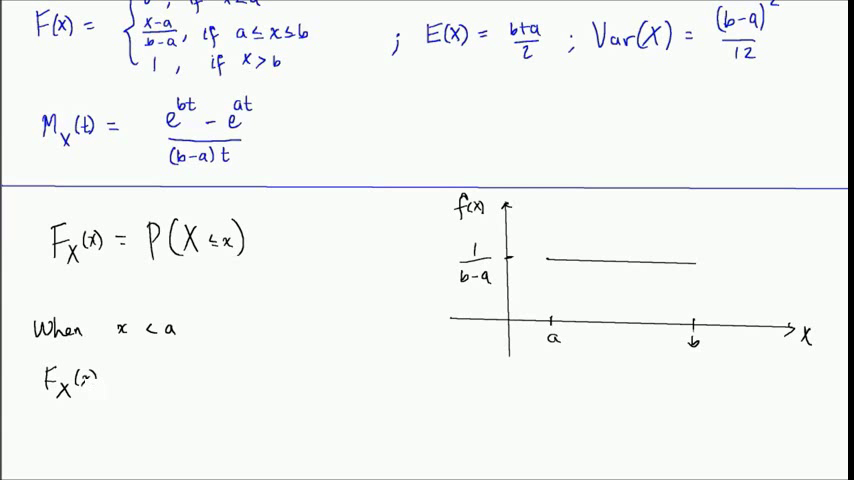 F(x) = { x-a/b-a, if a ≤ x ≤ b ; E(X) = b+a/2 ; Var(X) = (b-a)²/12
1 , if x > b
M_X(t) = e^bt - e^at / (b-a)t
F_X(x) = P(X ≤ x)
f(x)
1/b-a
a b X
When x < a
F_X(x)